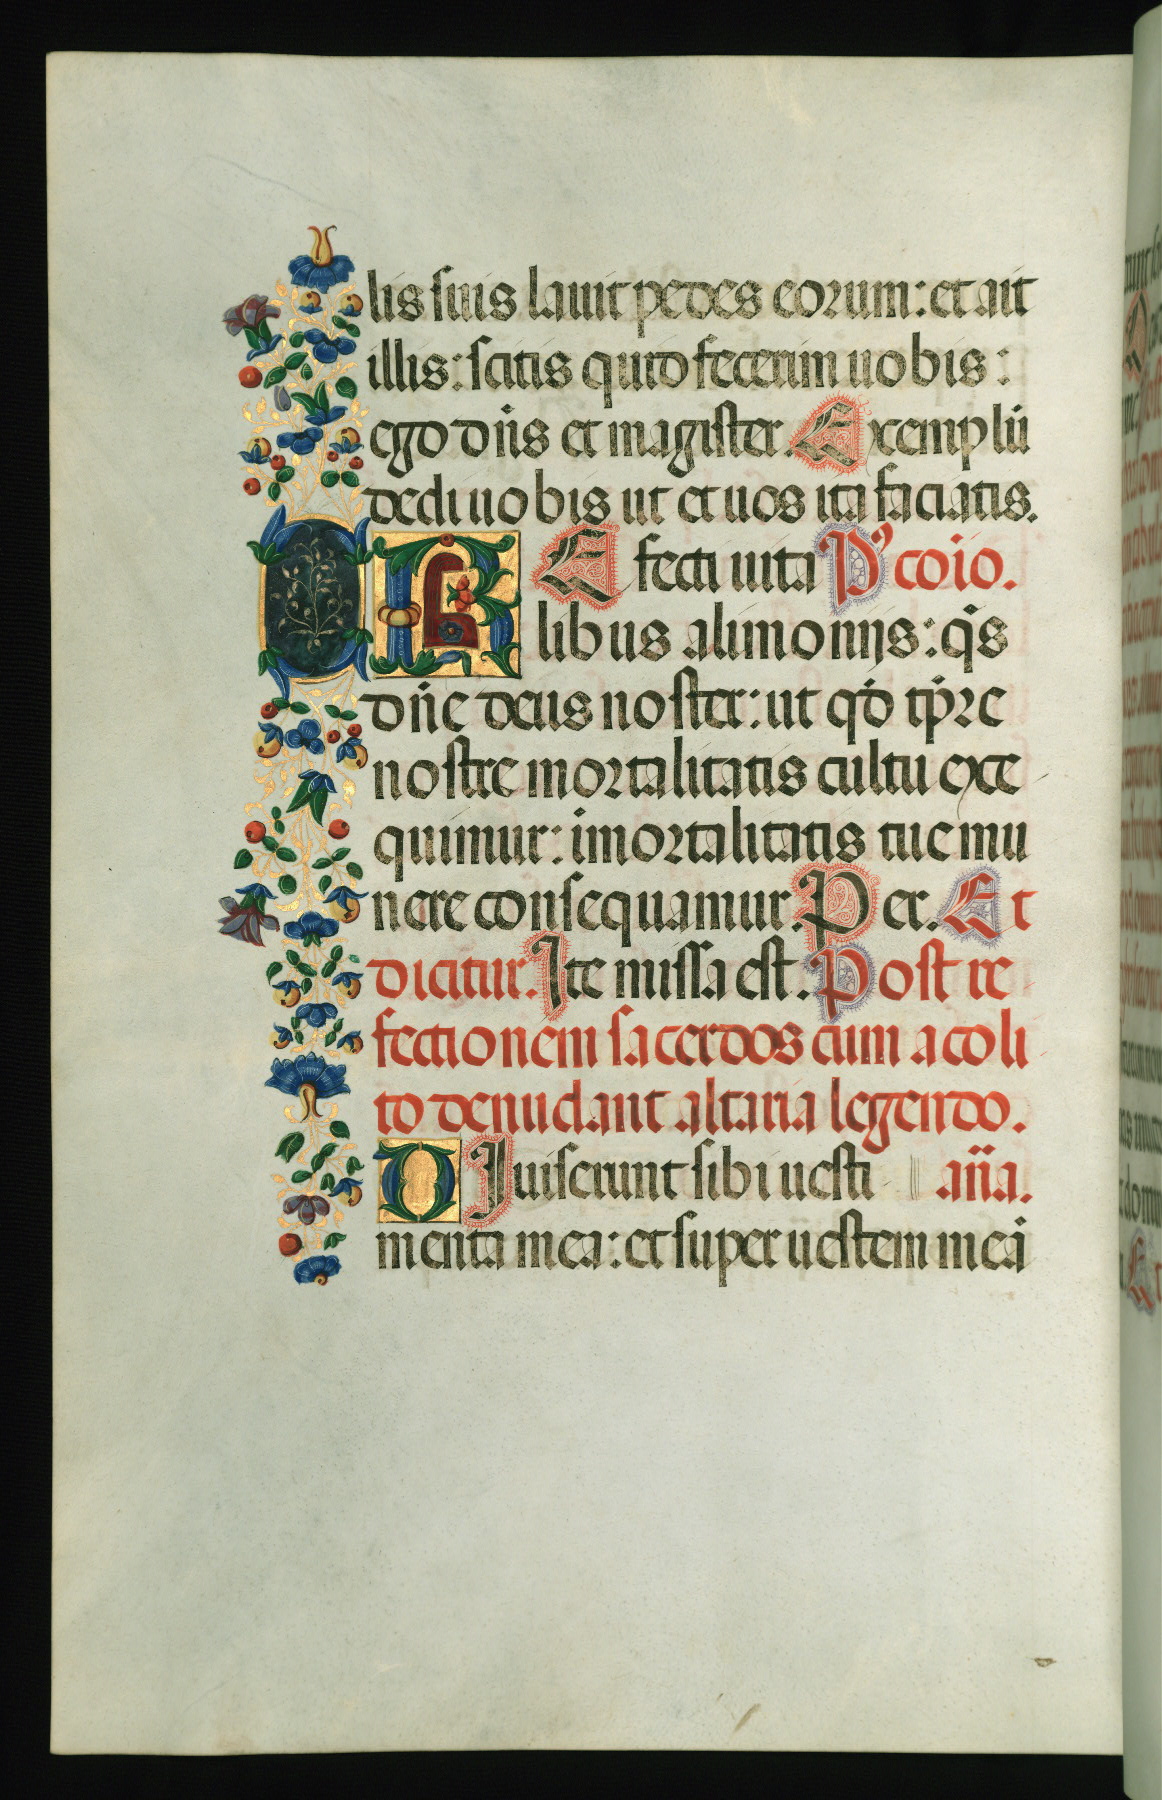 lis suis lauit pedes eorum: et ait
illis: scitis quid fecerim uobis:
ego dn̄s et magister. Exemplū
dedi uobis ut et uos ita faciatis.
REfecti uita Pꝰ coīo.
libus alimonijs: q̄s
dn̄e deus noster: ut qd̄ tp̄re
nostre mortalitatis cultu exe
quimur: īmortalitatis tue mu
nere consequamur. Per. Et
dicitur. Ite missa est. Post re
fectionem sacerdos cum acoli
to denudant altaria legendo.
DIuiserunt sibi uesti an̄a.
menta mea: et super uestem meā